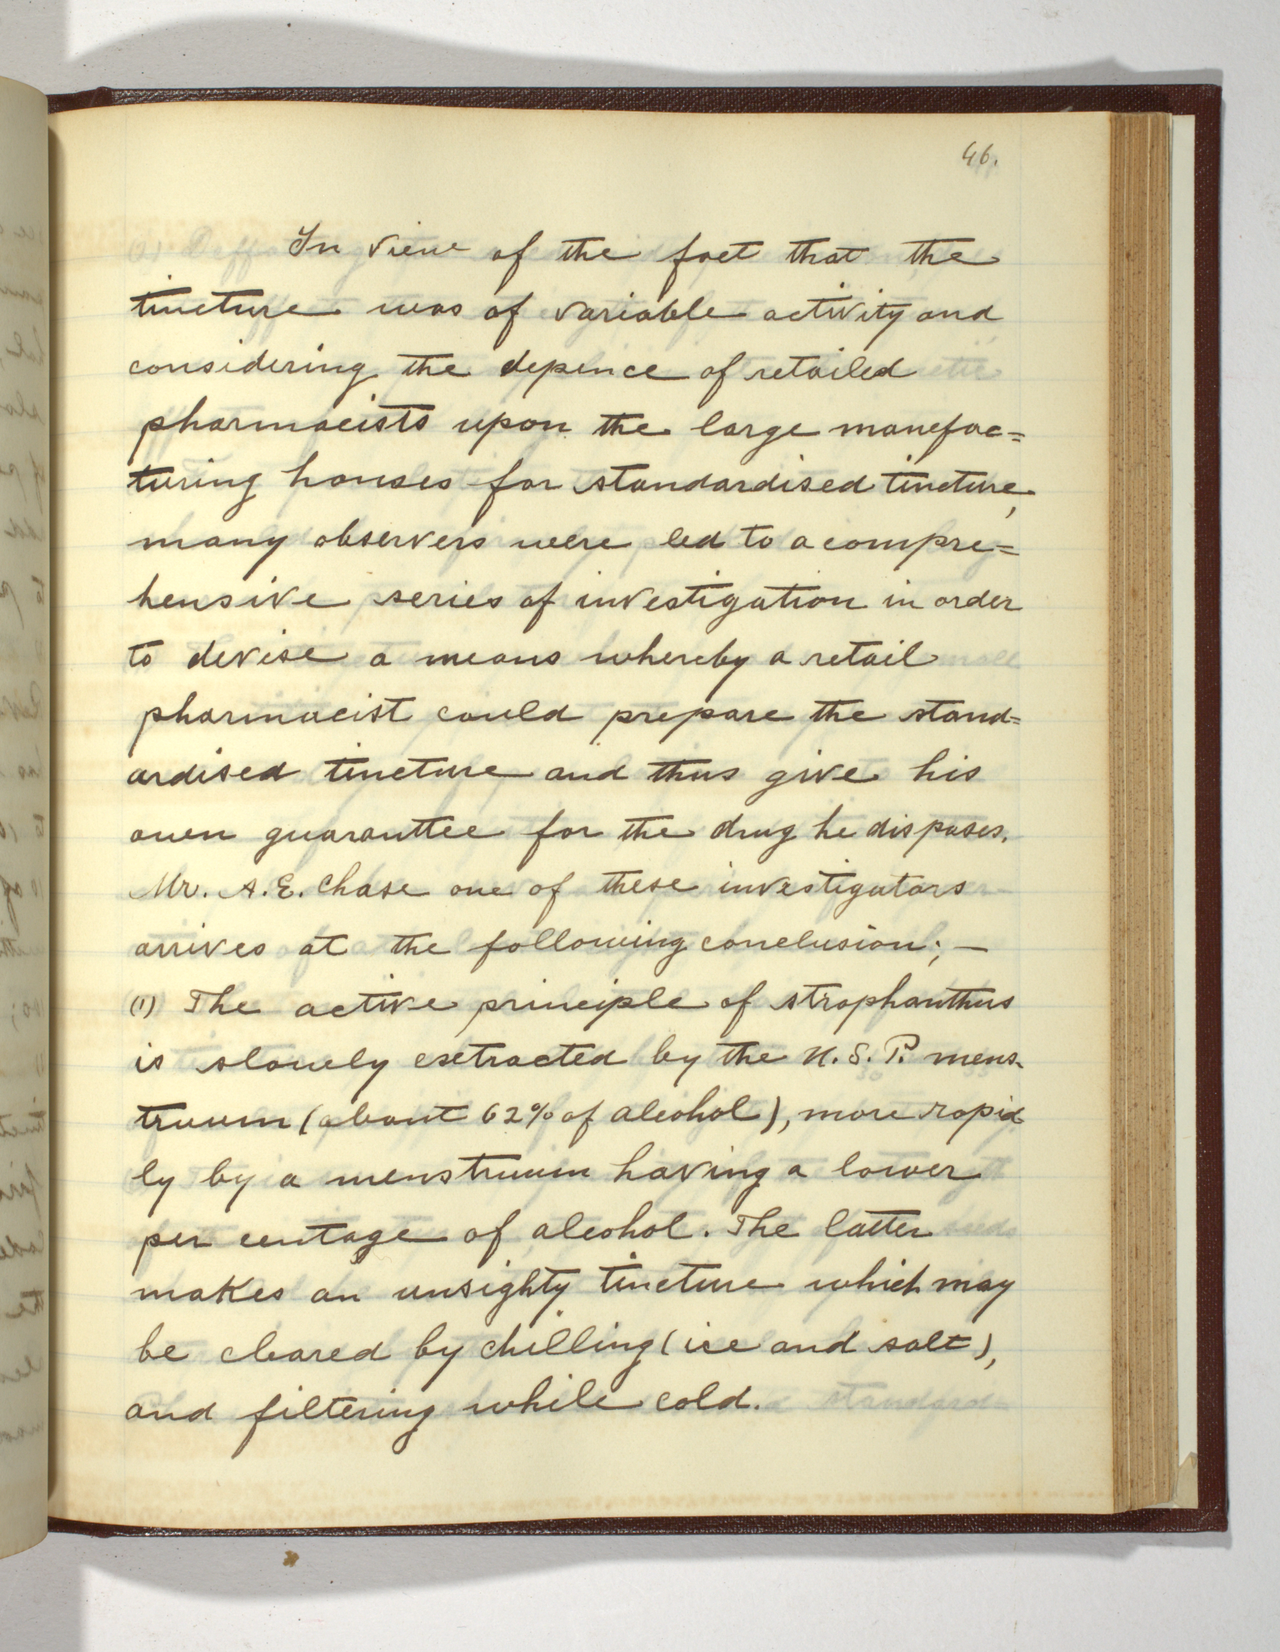 46.
In view of the fact that the
tincture was of variable activity and
considering the depence of retailed
pharmacists upon the large manefac=
turing houses for standardised tincture,
many observers were led to a compre=
hensive series of investigation in order
to devise a means whereby a retail
pharmacist could prepare the stand=
ardised tincture and thus give his
own guaranttee for the drug he disposes.
Mr. A. E. Chase one of these investigators
arrives at the following conclusion; —
(1) The active principle of strophanthus
is slowely extracted by the U. S. P. mens-
truum (about 62% of alcohol), more rapid
ly by a menstruum having a lower
per centage of alcohol. The latter
makes an unsighty tincture which may
be cleared by chilling (ice and salt),
and filtering while cold.